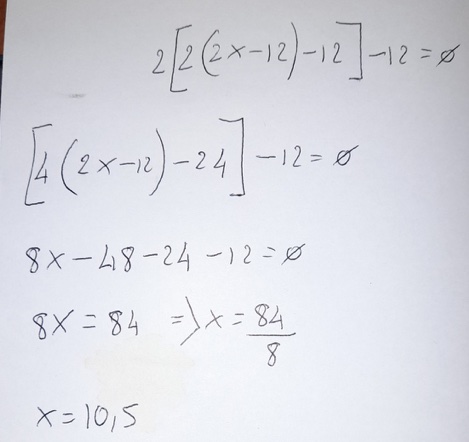 2[2(2x-12)-12]-12=ø
[4(2x-12)-24]-12=ø
8x-48-24-12=ø
8x=84 => x=84/8
x=10,5